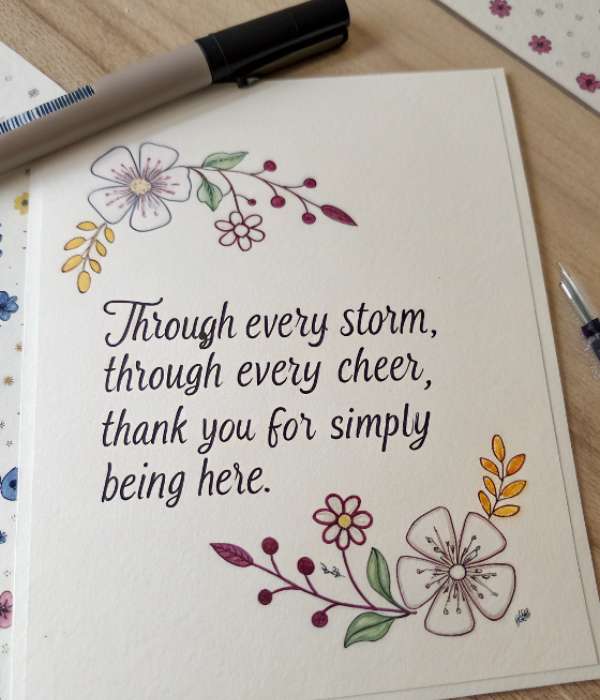 Through every storm,
through every cheer,
thank you for simply
being here.